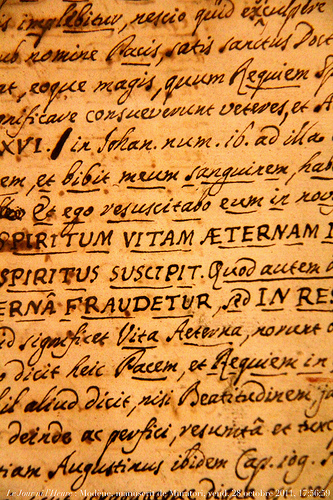 is implebitur, nescio quid exculpere
ub nomine Pacis, satis sanctus Doct
nt, eoque magis, quum Requiem
nificare consueverunt veteres, et si
XVI. in Johan. num. 16. ad illa
em, et bibit meum sanguinem, hab
Et ego resuscitabo eum in no
SPIRITUM VITAM ÆTERNAM
SPIRITUS SUSCIPIT. Quod autem
ERNÂ FRAUDETUR, sed IN RES
id significet Vita Aeterna, norunt
o dicit heic Pacem, et Requiem in
il aliud dicit, nisi Beatitudinem
deinde ac perfici, resumtâ et
tiam Augustinus ibidem Cap. 109.
Le Journal l'Heure : Modène, manuscrit de Muratori, vend. 28 octobre 2011, 17:56:59